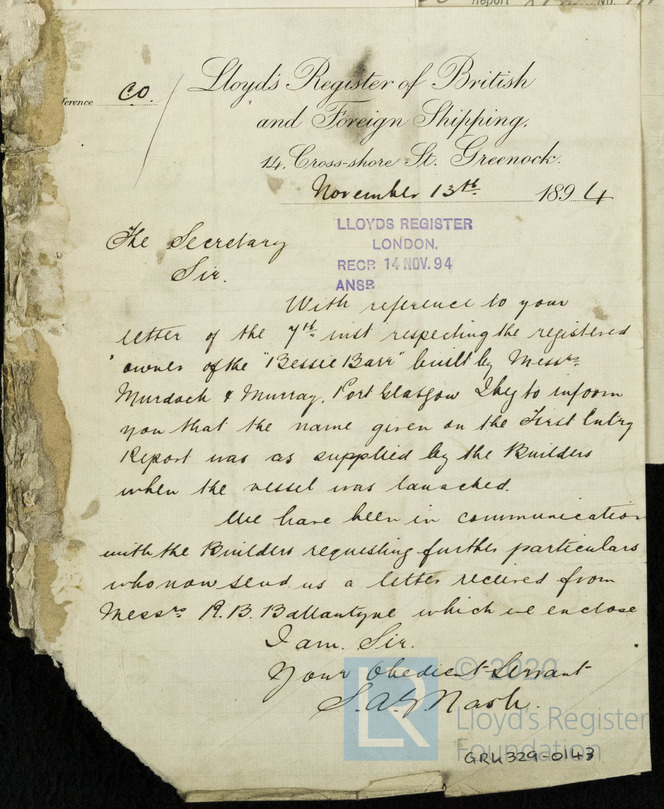 Report No.
ference CO.
Lloyd's Register of British
and Foreign Shipping.
14, Cross-shore St. Greenock.
November 13th 1894
LLOYDS REGISTER
LONDON.
RECD 14 NOV. 94
ANSD
The Secretary
Sir.
With reference to your
letter of the 7th inst respecting the registered
owner of the "Bessie Barr" built by Messrs
Murdoch & Murray, Port Glasgow I beg to inform
you that the name given on the First Entry
Report was as supplied by the Builders
when the vessel was launched.
We have been in communication
with the Builders requesting further particulars
who now send us a letter received from
Messrs R. B. Ballantyne which we enclose
I am. Sir.
Your Obedient Servant
Nash.
LR
© 2020
Lloyd's Register
Foundation
GRK329-0143